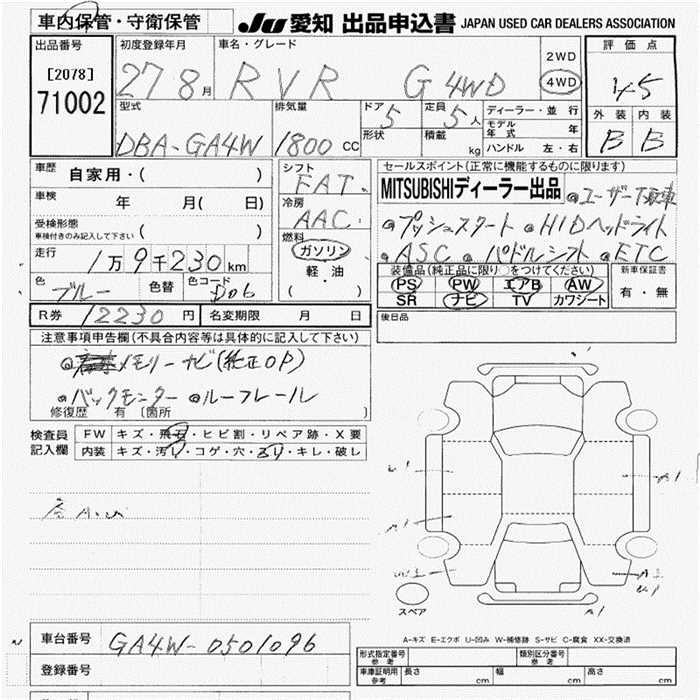 車内保管・守衛保管
JU 愛知 出品申込書 JAPAN USED CAR DEALERS ASSOCIATION
出品番号 初度登録年月 車名・グレード 評価点
[2078] 2WD
71002 27 8月 RVR G 4WD 4WD 4.5
型式 排気量 ドア 5 定員 5人 ディーラー・並行 外装 内装
モデル年式 年
形状 積載 kg ハンドル 左・右
DBA-GA4W 1800cc B B
車歴 自家用・( )
シフト FAT
セールスポイント(正常に機能するものに限ります)
MITSUBISHIディーラー出品 ユーザー下取車
車検 年 月( 日)
冷房 AAC
プッシュスタート HIDヘッドライト
受検形態 ( )
車検付きのみ記入して下さい
燃料
ガソリン
ASC パドルシフト ETC
走行 1万9千230km
軽・油
( )
装備品(純正品に限り○をつけてください) 新車保証書
色 ブルー 色替 色コード D06
PS PW エアB AW 有・無
SR ナビ TV カワシート
R券 12230円 名変期限 月 日
後日品
注意事項申告欄(不具合内容等は具体的に記入して下さい)
メモリーナビ(純正OP)
バックモニター ルーフレール
修復歴 有 〔箇所 〕
検査員 FW キズ・飛石・ヒビ割・リペア跡・X要
記入欄 内装 キズ・汚れ・コゲ・穴・スリ・キレ・破レ
A1
スペア
A1
A-キズ E-エクボ U-凹み W-補修跡 S-サビ C-腐食 XX-交換済
車台番号 GA4W-0501096
形式指定番号 参考 類別区分番号 参考
登録番号
車庫証明用 参考 長さ cm 幅 cm 高さ cm